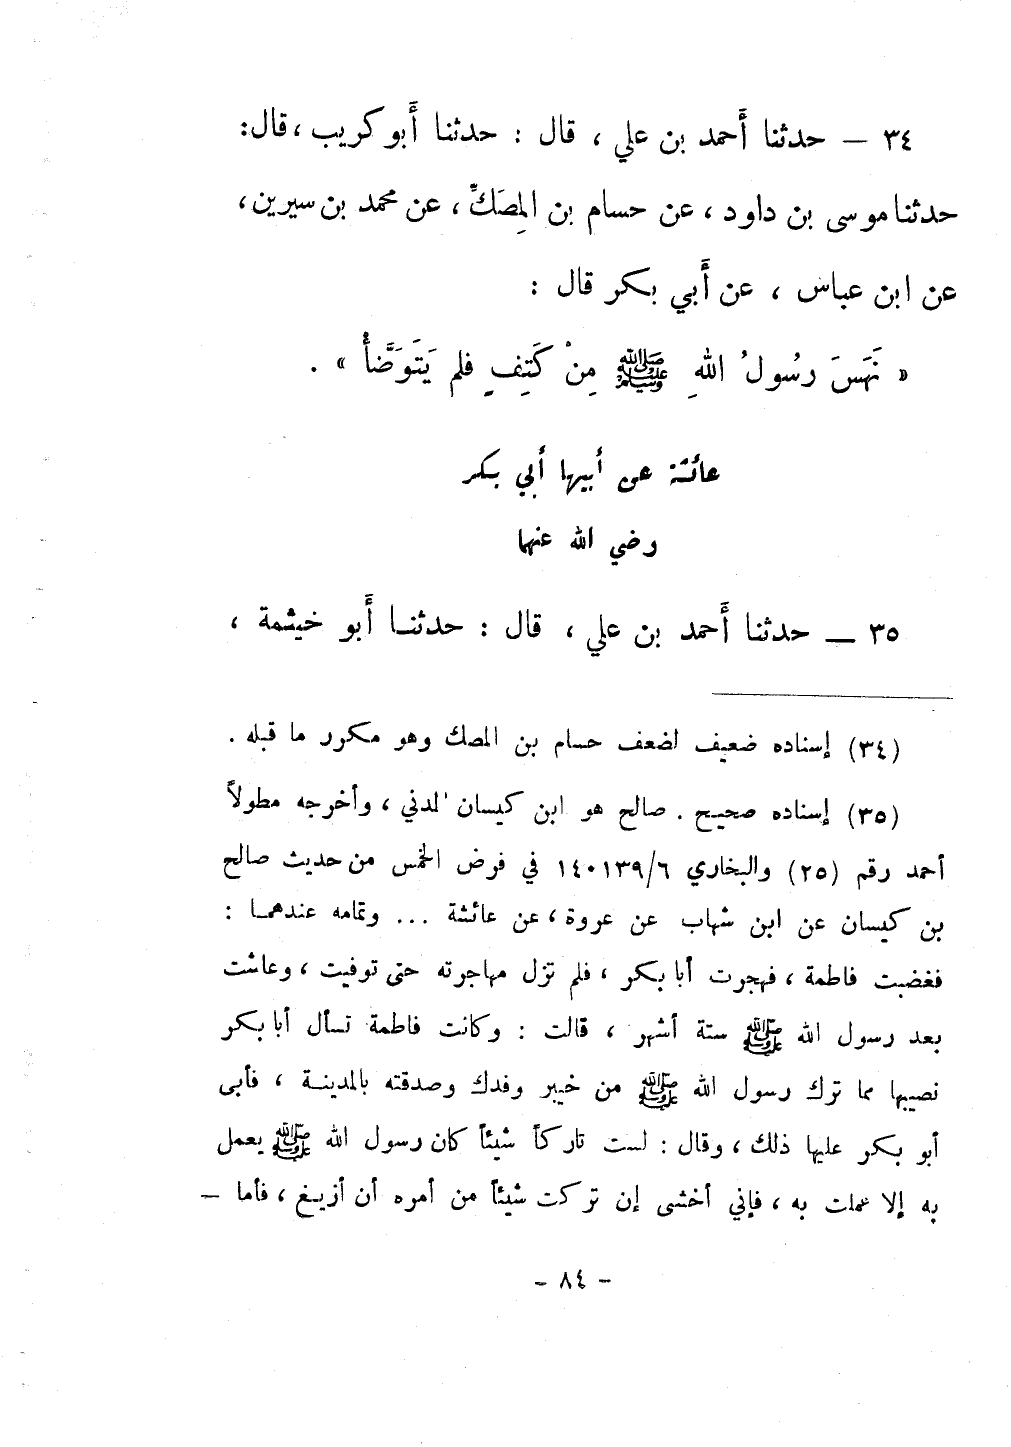 ٣٤ — حدثنا أَحمد بن علي ، قال : حدثنا أَبو كريب ، قال:
حدثنا موسى بن داود ، عن حسام بن المِصَكِّ ، عن محمد بن سيرين ،
عن ابن عباس ، عن أَبي بكر قال :
« نَهَسَ رسُولُ اللهِ ﷺ مِنْ كَتِفٍ فلم يَتَوَضَّأْ » .
عائشة عن أبيها أبي بكر
رضي الله عنهما
٣٥ — حدثنا أَحمد بن علي ، قال : حدثنـا أَبو خيثمة ،
(٣٤) إسناده ضعيف لضعف حسام بن المصك وهو مكرر ما قبله .
(٣٥) إسناده صحيح . صالح هو ابن كيسان المدني ، وأخرجه مطولاً
أحمد رقم (٢٥) والبخاري ١٤٠١٣٩/٦ في فرض الخمس من حديث صالح
بن كيسان عن ابن شهاب عن عروة ، عن عائشة ... وتمامه عندهمـا :
فغضبت فاطمة ، فهجرت أبا بكر ، فلم تزل مهاجرته حتى توفيت ، وعاشت
بعد رسول الله ﷺ ستة أشهر ، قالت : وكانت فاطمة تسأل أبا بكر
نصيبها مما ترك رسول الله ﷺ من خيبر وفدك وصدقته بالمدينـة ، فأبى
أبو بكر عليها ذلك ، وقال : لست تاركاً شيئاً كان رسول الله ﷺ يعمل
به إلا عملت به ، فإني أخشى إن تركت شيئاً من أمره أن أزيـغ ، فأما —
- ٨٤ -